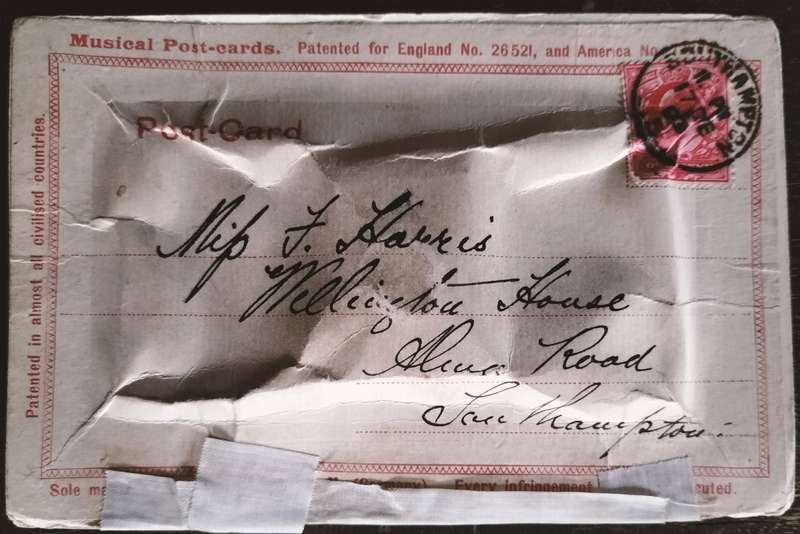 Musical Post-cards. Patented for England No. 26521, and America No
Patented in almost all civilised countries.
Post-Card
SOUTHAMPTON
Miſs F. Harris
Wellington House
Alma Road
Southampton.
Sole (Germany) Every infringement